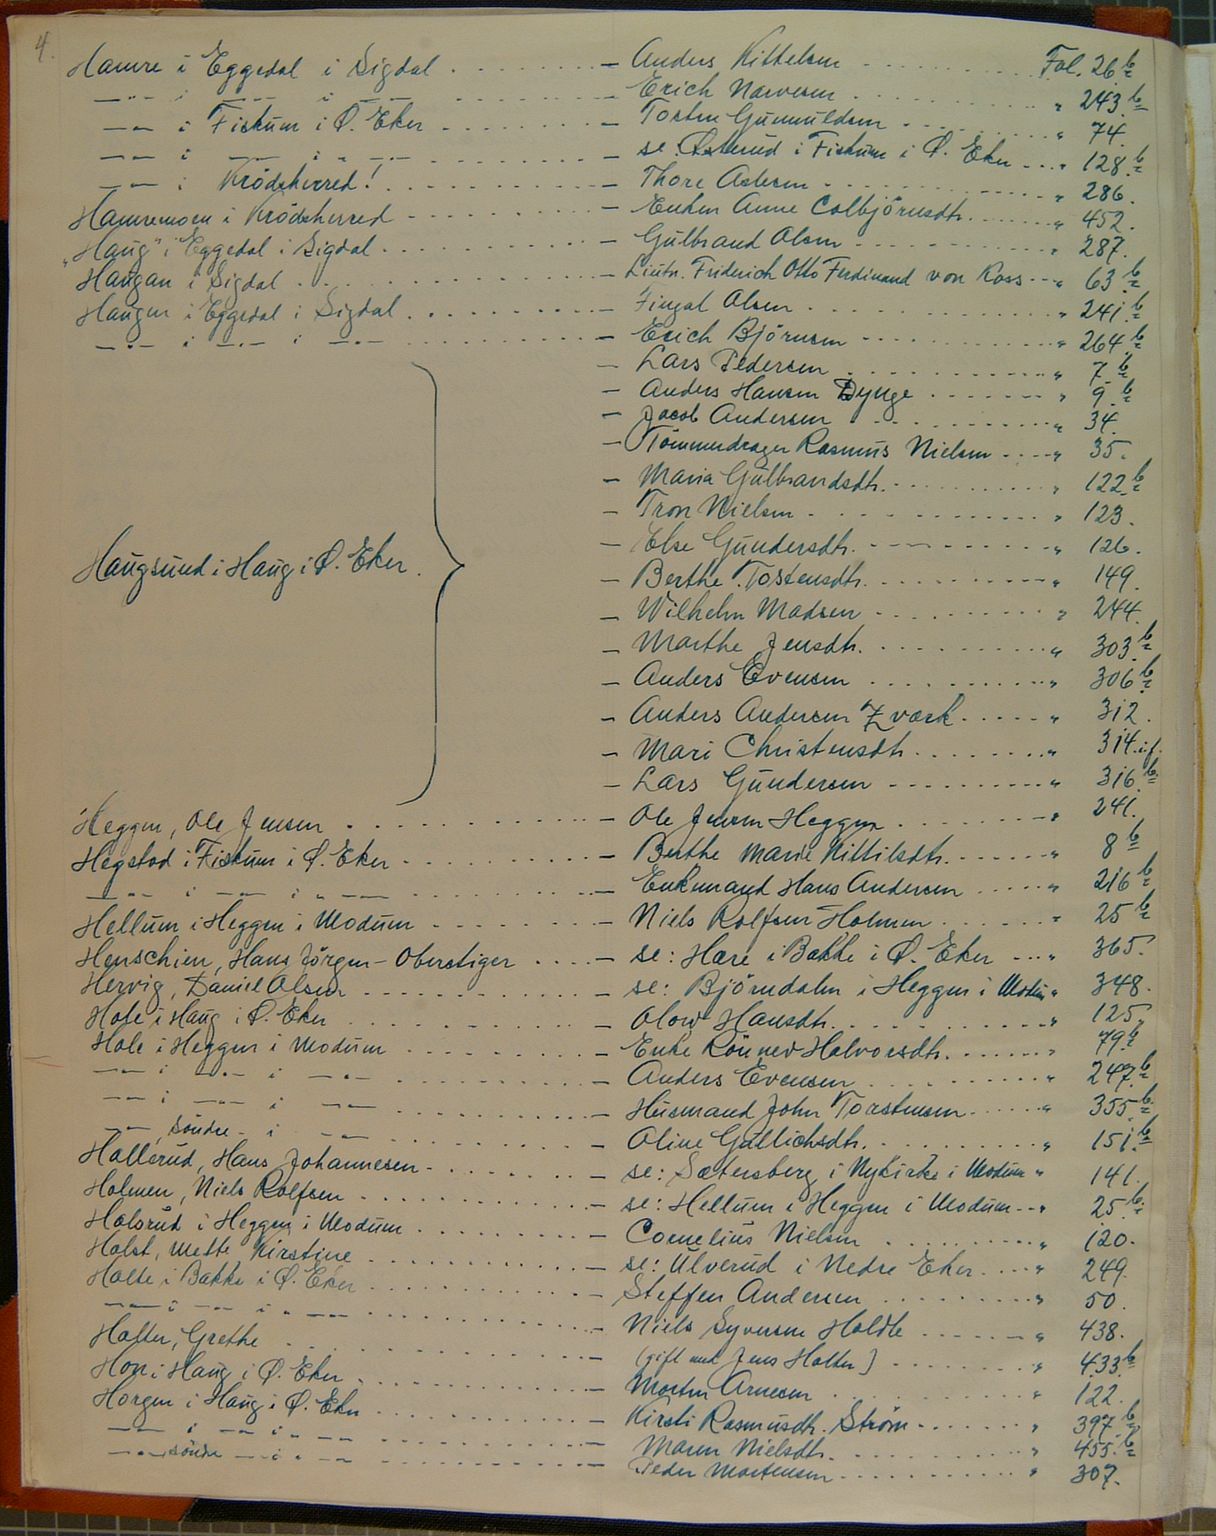 4.
Hamre i Eggedal i Sigdal - Anders Kittelsen Fol. 26 b
—"— i —"— i —"— - Erich Narvesen " 243. b
—"— i Fiskum i Ø. Eker - Torsten Gunnuldsen " 74.
—"— i —"— i " —"— - se Østerud i Fiskum i Ø. Eker " 128. b
—"— i Krödsherred! - Thore Aslesen " 286.
Hamremoen i Krödsherred - Enken Anne Colbjörnsdtr. " 452.
"Haug" i Eggedal i Sigdal - Gulbrand Olsen " 287.
Haugan i Sigdal - Lieutn. Friderich Otto Ferdinand von Ross " 63. b
Haugen i Eggedal i Sigdal - Fingal Olsen " 241. b
—"— i —"— i —"— - Erich Björnsen " 264. b
Haugsund i Haug i Ø. Eker. - Lars Pedersen " 7. b
- Anders Hansen Dynge " 9. b
- Jacob Andersen " 34.
- Tömmerdrager Rasmus Nielsen " 35.
- Maria Gulbrandsdtr. " 122. b
- Tron Nielsen " 123.
- Else Gundersdtr. " 126.
- Berthe Tostensdtr. " 149.
- Wilhelm Madsen " 244.
- Marthe Jensdtr. " 303. b
- Anders Evensen " 306. b
- Anders Andersen Zværk " 312.
- Mari Christensdtr. " 314. i.f.
- Lars Gundersen " 316. b
Heggen, Ole Jensen - Ole Jensen Heggen " 241.
Hegstad i Fiskum i Ø. Eker - Berthe Marie Kittilsdtr. " 8 b
—"— i —"— i " —"— - Enkemand Hans Andersen " 216 b
Hellum i Heggen i Modum - Niels Rolfsen Holmen " 25 b
Henschien, Hans Jörgen - Oberstiger - se: Hære i Bakke i Ø. Eker " 365.
Hervig, Daniel Olsen - se: Björndalen i Heggen i Modum " 348.
Hole i Haug i Ø. Eker - Olow Hansdtr. " 125.
Hole i Heggen i Modum - Enke Rönnev Halvorsdtr. " 79. b
—"— i —"— i —"— - Anders Evensen " 247. b
—"— i —"— i —"— - Husmand John Torstensen " 355. b
—"—, söndre - i —"— - Oline Gullichsdtr. " 151. b
Hollerud, Hans Johannesen - se: Sætersberg i Nykirke i Modum " 141.
Holmen, Niels Rolfsen - se: Hellum i Heggen i Modum " 25. b
Holsrud i Heggen i Modum - Cornelius Nielsen " 120.
Holst, Mette Kirstine - se: Ulverud i Nedre Eker " 249.
Holte i Bakke i Ø. Eker - Steffen Andersen " 50.
—"— i —"— i " —"— - Niels Syversen Holdte " 438.
Holter, Grethe - (gift med Jens Holter) " 433. b
Hon i Haug i Ø. Eker - Morten Arnesen " 122.
Horgen i Haug i Ø. Eker - Kirsti Rasmusdtr. Ström " 397. b
—"— i —"— i " —"— - Maren Nielsdtr. " 455. b
—"— söndre —"— i " —"— - Peder Mortensen " 307.